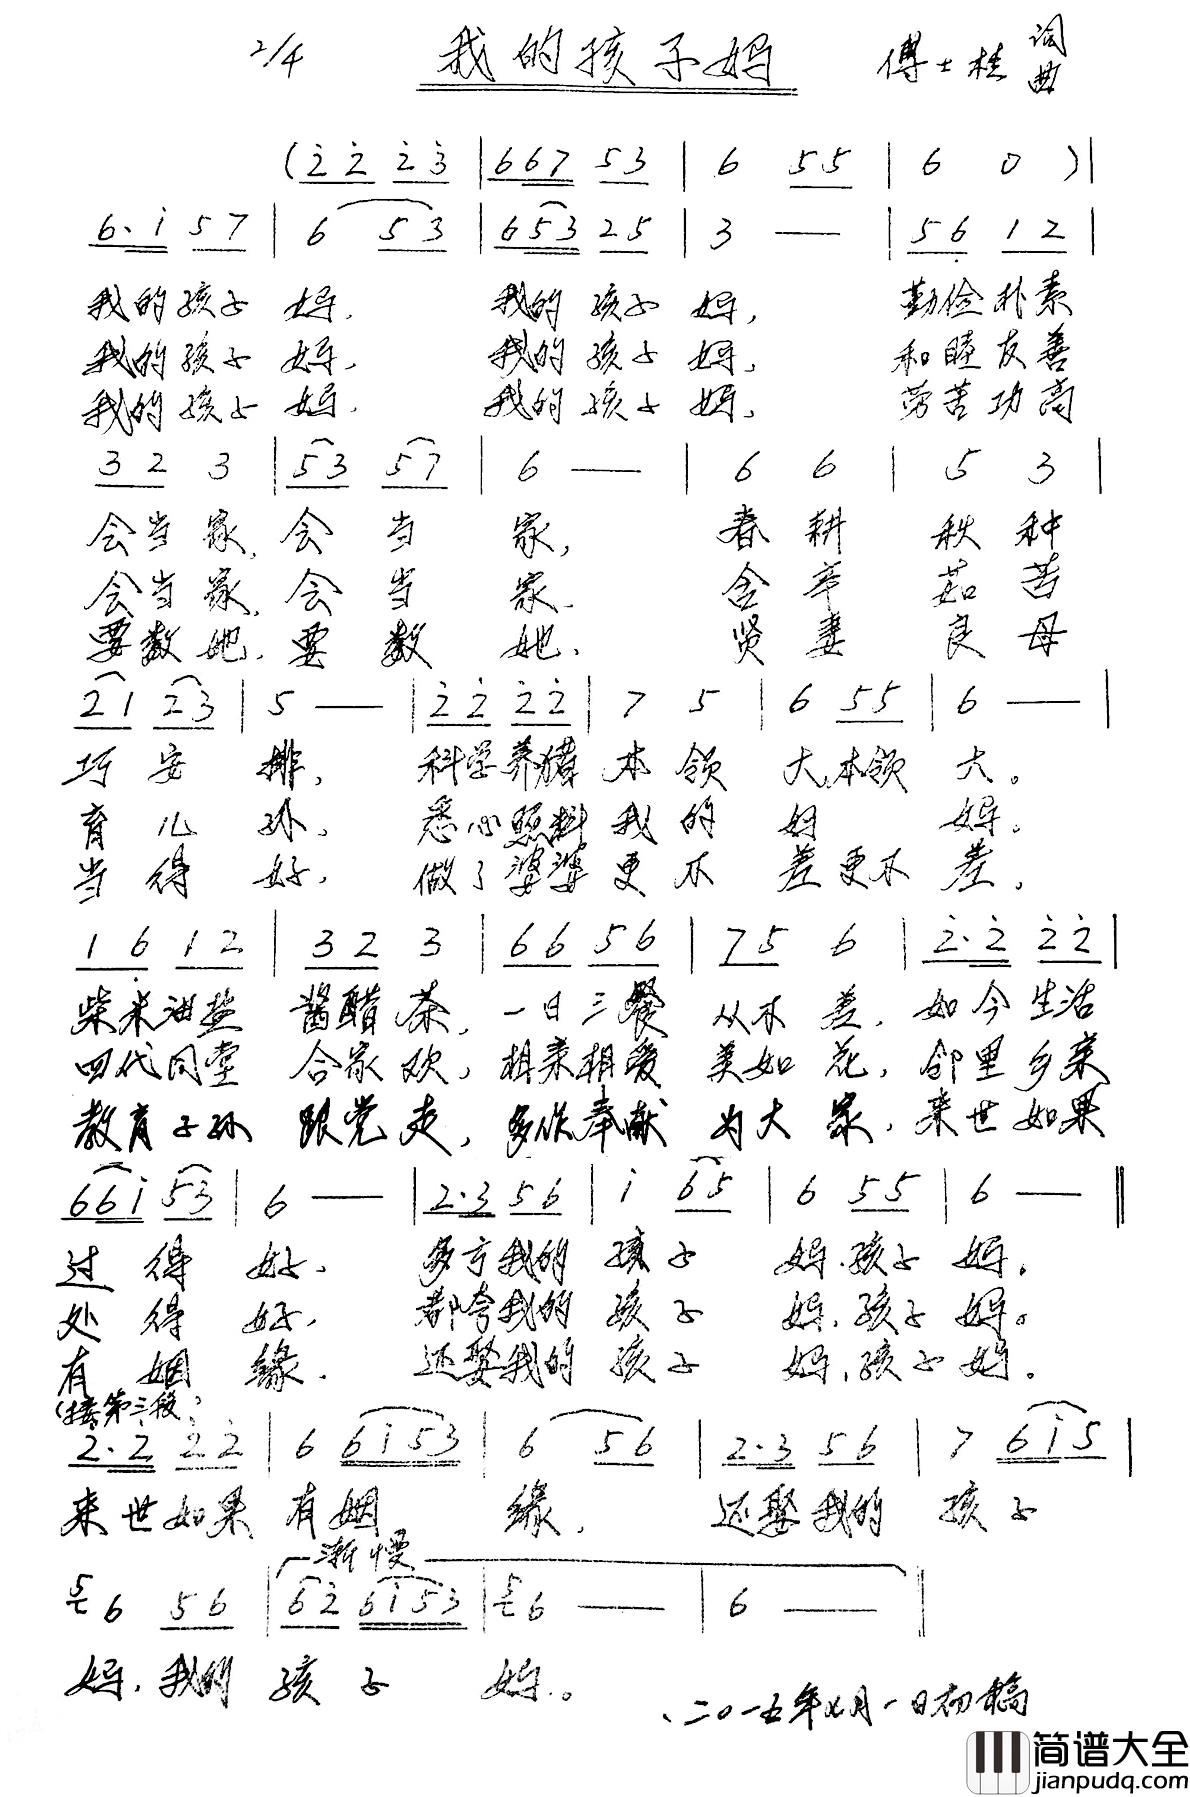 2/4 我的孩子妈 傅士桂 词曲
(2̇ 2̇ 2̇ 3̇ | 6 6 7 5 3 | 6 5 5 | 6 0 ) |
6· i 5 7 | 6 5 3 | 6 5 3 2 5 | 3 — | 5 6̣ 1 2 |
我的孩子 妈, 我的孩子妈, 勤俭朴素
我的孩子 妈, 我的孩子妈, 和睦友善
我的孩子 妈, 我的孩子妈, 劳苦功高
3 2 3 | 5 3 5 7 | 6 — | 6 6 | 5 3 |
会当家,会当家, 春耕秋种
会当家,会当家, 含辛茹苦
要数她,要数她, 贤妻良母
2 1 2 3 | 5 — | 2̇ 2̇ 2̇ 2̇ | 7 5 | 6 5 5 | 6 — |
巧安排, 科学养猪本领大,本领大。
育儿孙, 悉心照料我的妈妈。
当得好, 做了婆婆更不差更不差,
1 6̣ 1 2 | 3 2 3 | 6 6 5 6 | 7 5 6 | 2̇· 2̇ 2̇ 2̇ |
柴米油盐酱醋茶,一日三餐从不差,如今生活
四代同堂合家欢,相亲相爱美如花,邻里乡亲
教育子孙跟党走,多作奉献为大家,来世如果
6 6 i 5 3 | 6 — | 2· 3 5 6 | i 6 5 | 6 5 5 | 6 — ‖
过得好, 多亏我的孩子妈,孩子妈。
处得好, 都夸我的孩子妈,孩子妈。
有姻缘, 还娶我的孩子妈,孩子妈。
(接第三段)
2̇· 2̇ 2̇ 2̇ | 6 6 i 5 3 | 6 5 6 | 2· 3 5 6 | 7 6 i 5 |
来世如果有姻缘, 还娶我的孩子
渐慢
5 6 5 6 | 6 2̇ 6 i 5 3 | 5 6 — | 6 — ‖
妈,我的孩子妈。
二〇一五年七月一日初稿
简谱大全
jianpudq.com